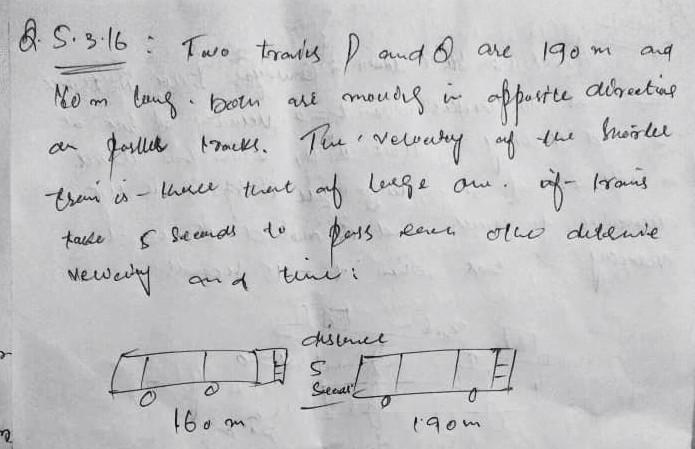 Q. S.3.16 : Two trains P and Q are 190 m and
160 m long. both are moving in opposite directing
on parllel tracks. The velocity of the shorter
train is thrice that of large one. if trains
take 5 seconds to pass each other determine
velocity and time:
distance
5
Second
160 m
190m